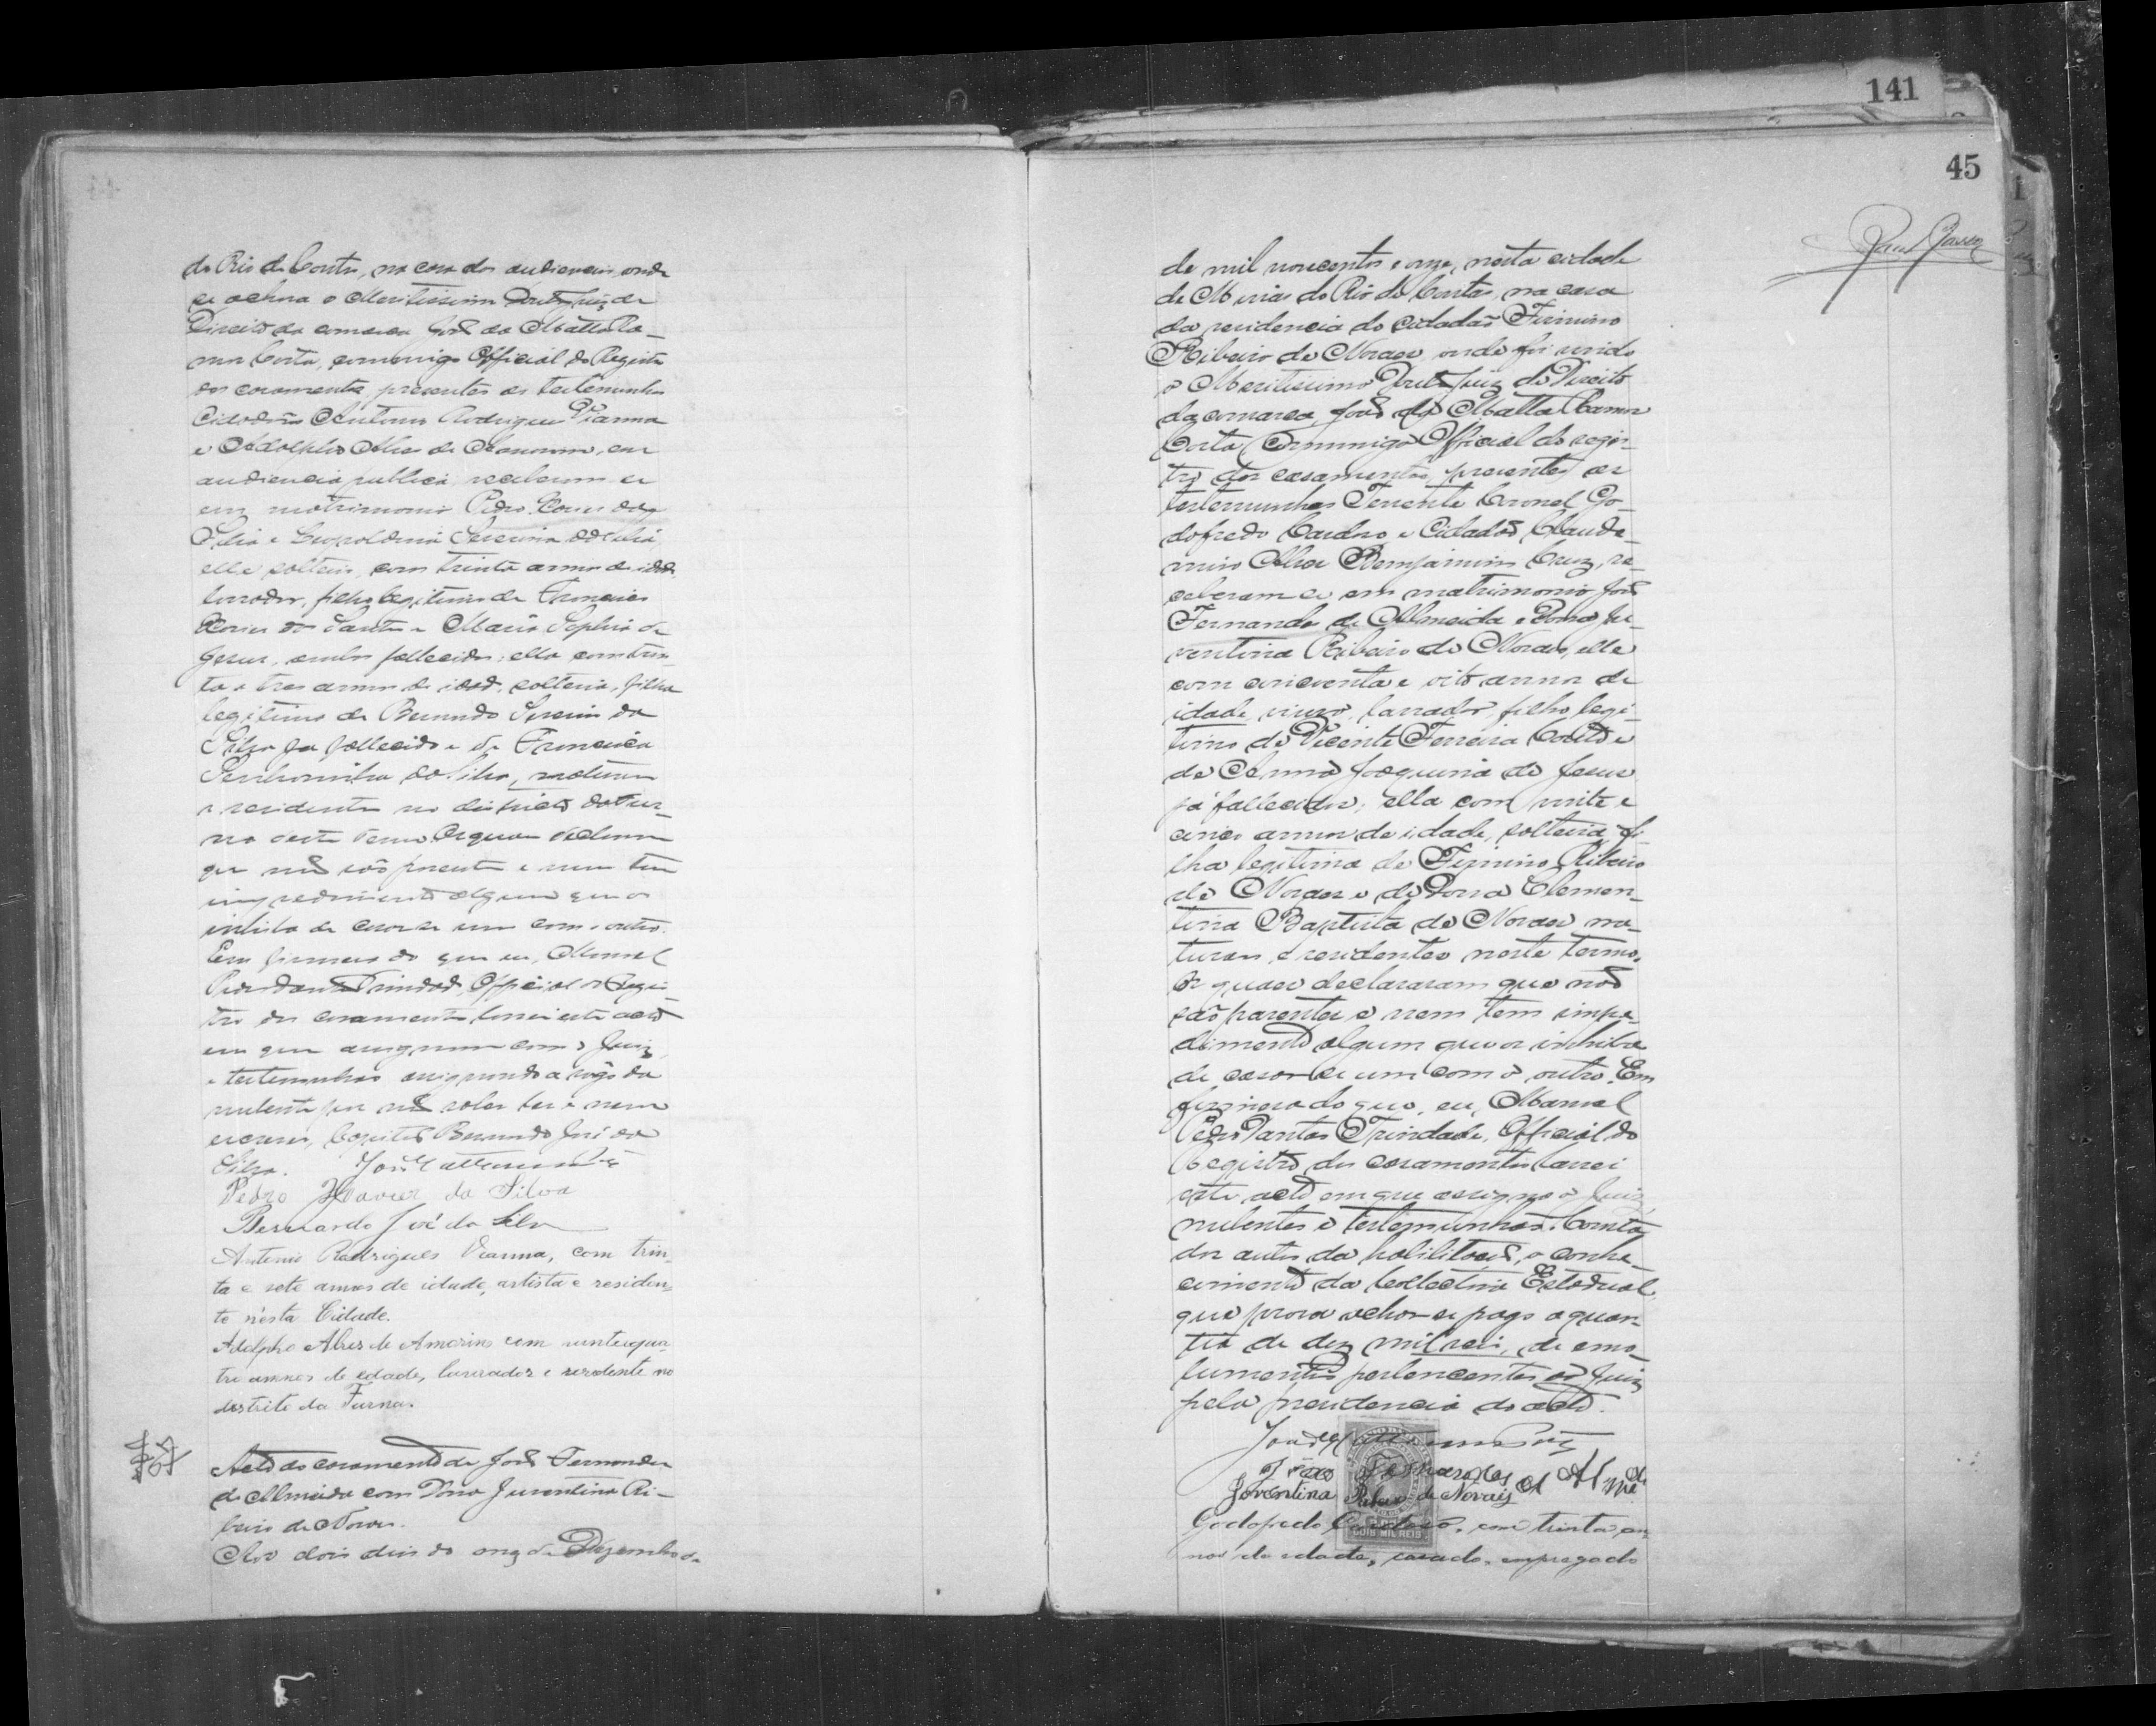 do Rio de Contas, na casa das audiencias, onde
se achava o Meritissimo Doutor Juiz de
Direito da comarca João da Matta Ra-
mos Costa, commigo Official do Registro
dos casamentos, presentes as testemunhas
Cidadãos Antonio Rodrigues Vianna
e Adolpho Alves de Amorim, em
audiencia publica receberam-se
em matrimonio Pedro Xavier da
Silva e Leopoldina Severina da Silva,
elle solteiro, com trinta annos de idade,
lavrador, filho legitimo de Francisco
Xavier dos Santos e Maria Sophia de
Jesus, ambos fallecidos; ella com trin-
ta e tres annos de idade, solteira, filha
legitima de Bernardo Severino da
Silva ja fallecido e de Francisca
Senhorinha da Silva, naturaes
e residentes no districto da Fur-
na deste termo. Os quaes declararam
que não são parentes e nem tem
impedimento algum que os
inhiba de casar-se um com o outro.
Em firmeza do que eu, Manoel
Pedro Dantas Trindade, Official do Regis-
tro dos casamentos lavrei este acto
em que assignam com o Juiz,
e testemunhas assignando a rogo da
nubente por não saber ler e nem
escrever, Capitão Bernardo José da
Silva. João Matta
Pedro Xavier da Silva
Bernardo José da Silva
Antonio Rodrigues Vianna, com trin-
ta e sete annos de idade, artista e residen-
te nésta Cidade.
Adolpho Alves de Amorim com vinte e qua-
tro annos de edade, lavrador e residente no
destrito da Furna.
Acto do casamento de João Fernandes
de Almeida com Dona Juventina Ri-
beiro de Novaes.
Aos dois dias do mez de Dezembro
141
45
de mil novecentos e onze, nesta cidade
de Minas do Rio de Contas, na casa
da residencia do cidadão Firmino
Ribeiro de Novaes, onde foi vindo
o Meritissimo Doutor Juiz de Direito
da comarca, João da Matta Ramos
Costa, commigo Official do regis-
tro dos casamentos, presentes as
testemunhas Tenente Coronel Go-
dofredo Cardoso e Cidadão Claude-
miro Alves Benjamim Cruz, re-
ceberam-se em matrimonio João
Fernandes de Almeida e Dona Ju-
ventina Ribeiro de Novaes, elle
com cincoenta e oito annos de
idade, viuvo, lavrador, filho legi-
timo de Vicente Ferreira Couto e
de Joaquina de Jesus
já fallecidos; ella com vinte e
cinco annos de idade, solteira, fi-
lha legitima de Firmino Ribeiro
de Novaes e de Dona Clemen-
tina Baptista de Novaes na-
turaes e residentes neste termo.
Os quaes declararam que não
são parentes e nem tem impe-
dimento algum que os inhiba
de casar-se um com o outro. Em
firmeza do que, eu, Manoel
Pedro Dantas Trindade, Official do
Registro dos casamentos lavrei
este acto em que assigna o Juiz,
nubentes e testemunhas. Consta
dos autos da habilitação, o conhe-
cimento da Collectoria Estadual,
que prova achar-se pago a quan-
tia de dez mil reis, de emo-
lumentos pertencentes ao Juiz
pela presidencia do acto.
João Matta
João Fernandes d Almeida
Joventina Ribeiro de Novais
DOIS MIL REIS
Godofredo Cardoso, com trinta an-
nos de edade, casado, empregado